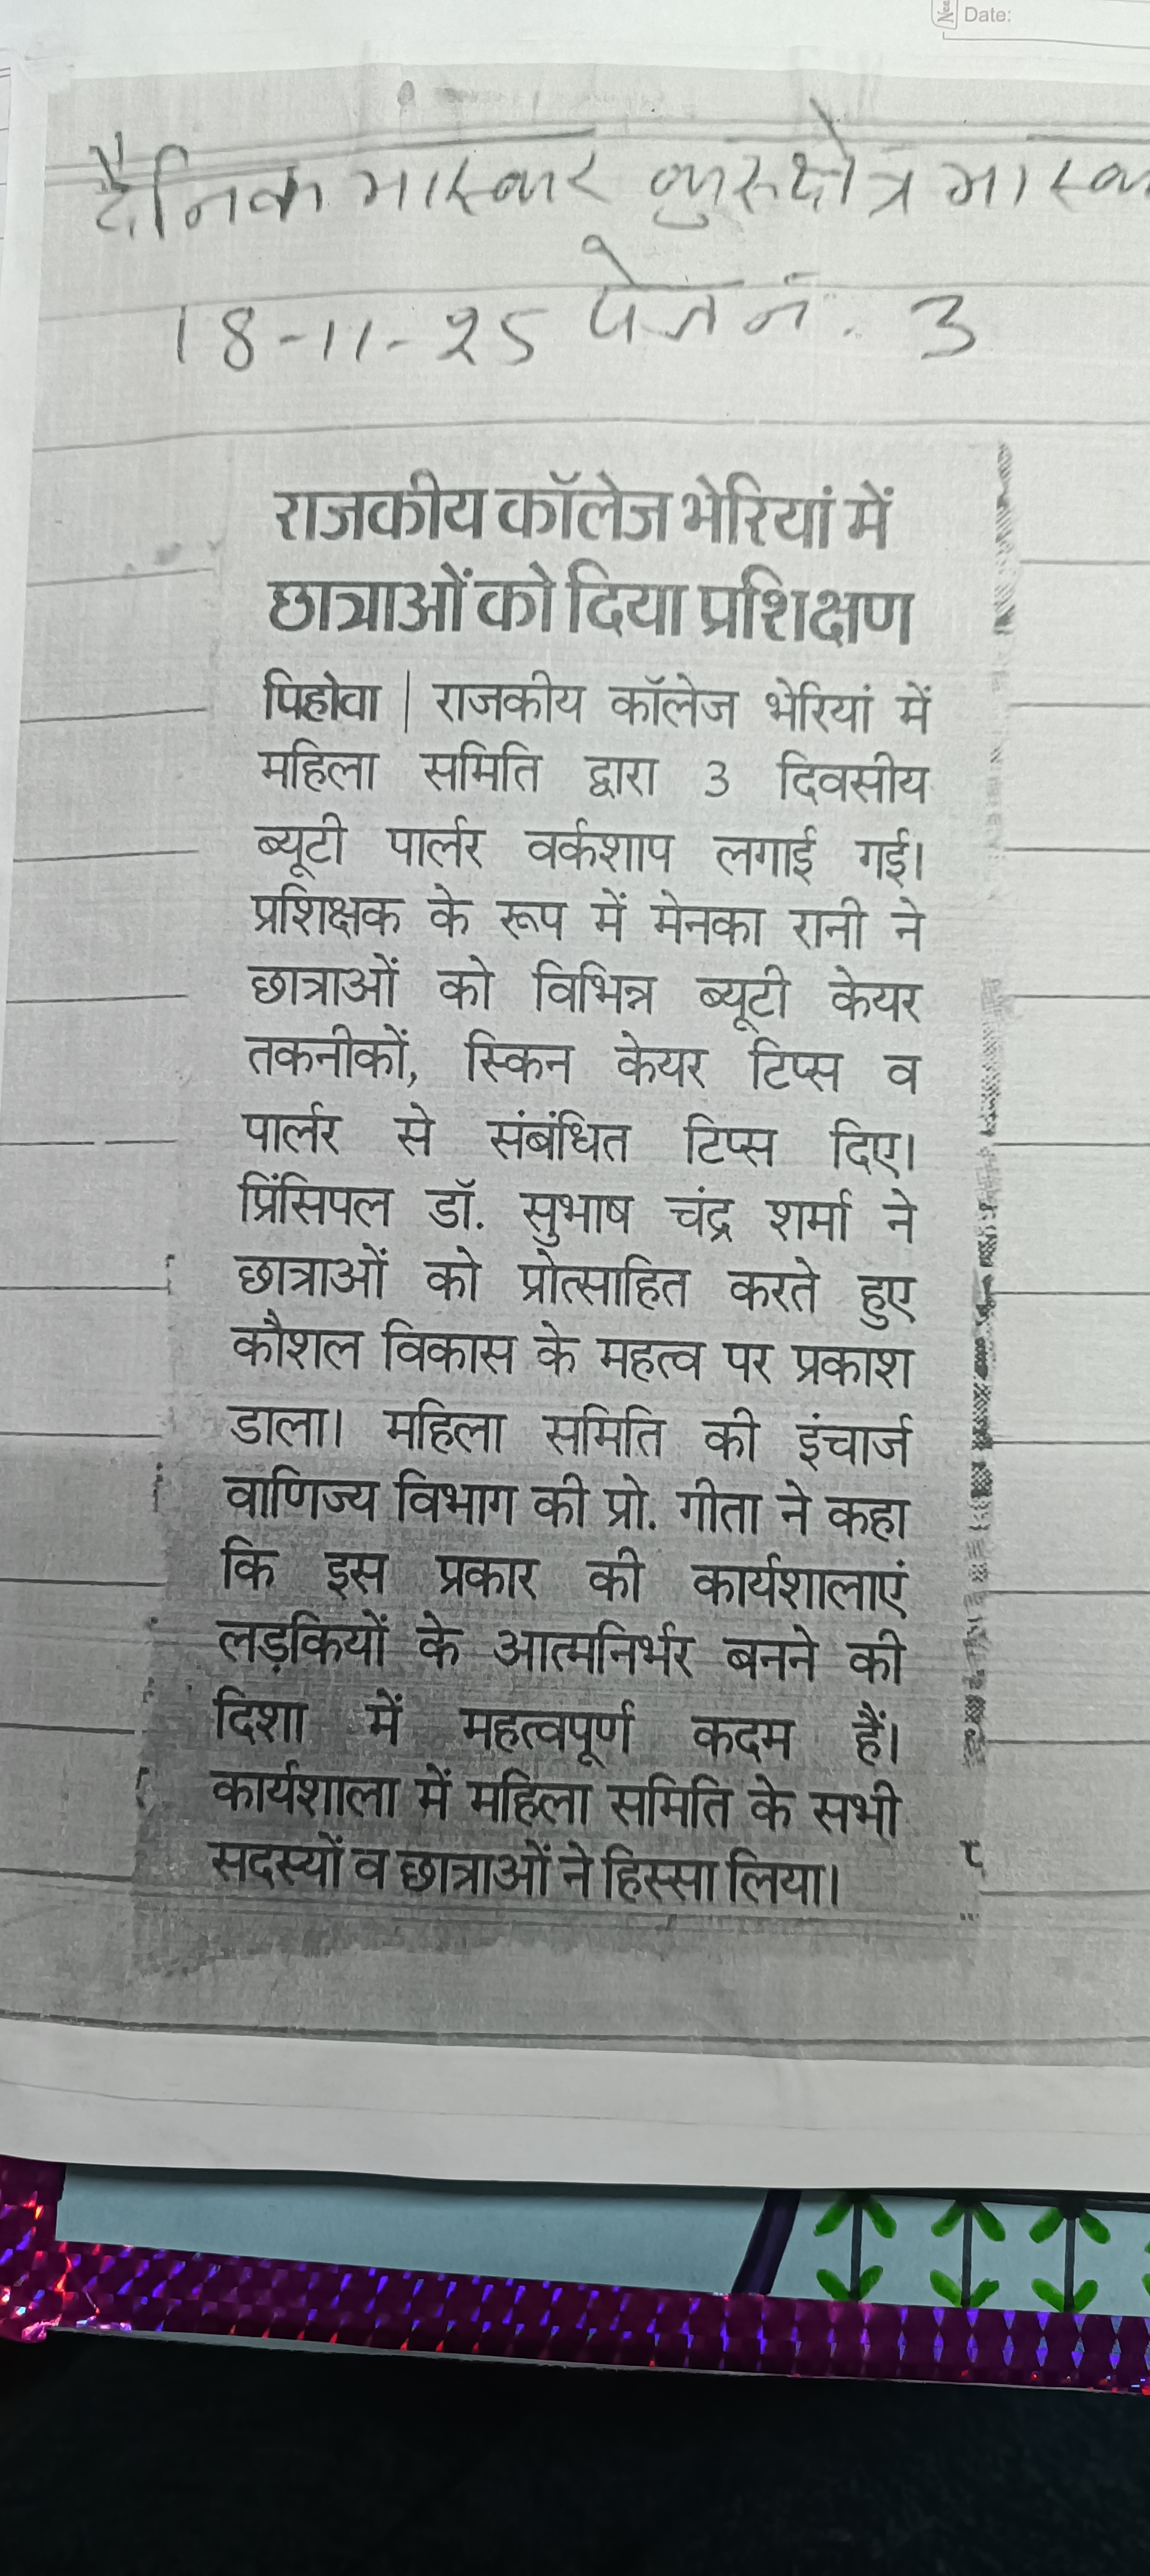 Date:
दैनिक भास्कर कुरुक्षेत्र
18-11-25 पेज नं. 3
राजकीय कॉलेज भेरियां में
छात्राओं को दिया प्रशिक्षण
पिहोवा | राजकीय कॉलेज भेरियां में
महिला समिति द्वारा 3 दिवसीय
ब्यूटी पार्लर वर्कशाप लगाई गई।
प्रशिक्षक के रूप में मेनका रानी ने
छात्राओं को विभिन्न ब्यूटी केयर
तकनीकों, स्किन केयर टिप्स व
पार्लर से संबंधित टिप्स दिए।
प्रिंसिपल डॉ. सुभाष चंद्र शर्मा ने
छात्राओं को प्रोत्साहित करते हुए
कौशल विकास के महत्व पर प्रकाश
डाला। महिला समिति की इंचार्ज
वाणिज्य विभाग की प्रो. गीता ने कहा
कि इस प्रकार की कार्यशालाएं
लड़कियों के आत्मनिर्भर बनने की
दिशा में महत्वपूर्ण कदम हैं।
कार्यशाला में महिला समिति के सभी
सदस्यों व छात्राओं ने हिस्सा लिया।